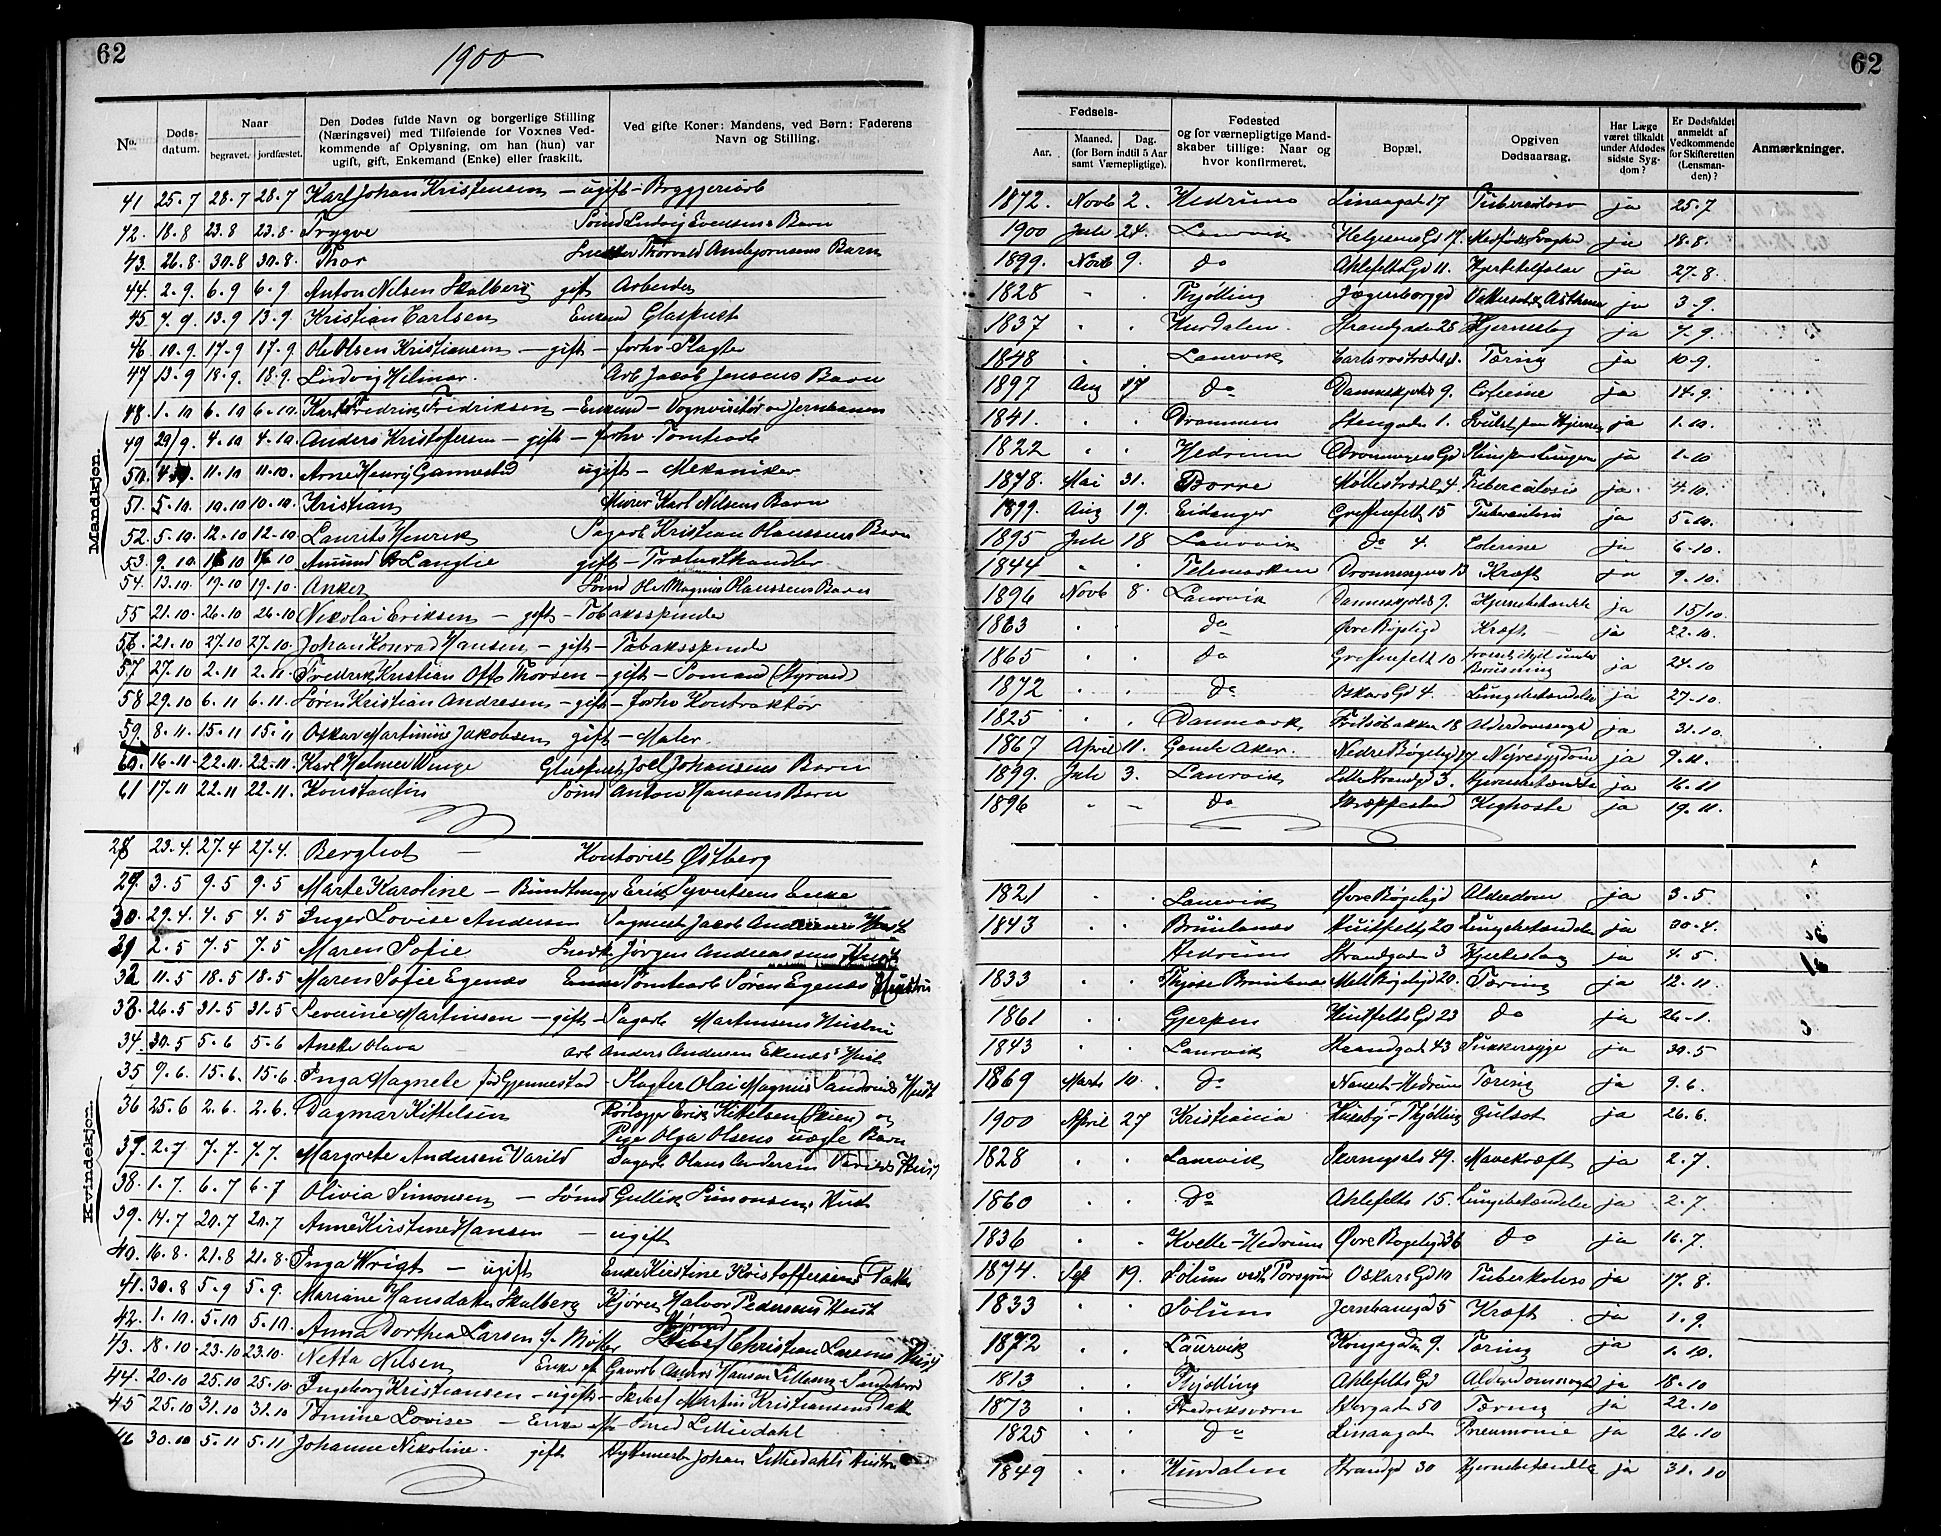 62
1900
No.
Dødsdatum.
Naar
begravet. jordfæstet.
Den Dødes fulde Navn og borgerlige Stilling
(Næringsvei) med Tilføiende for Voxnes Ved-
kommende af Oplysning, om han (hun) var
ugift, gift, Enkemand (Enke) eller fraskilt.
Ved gifte Koner: Mandens, ved Børn: Faderens
Navn og Stilling.
Mandkjøn.
41 25.7 28.7 28.7 Karl Johan Kristensen – ugift – Bryggeriarb
42. 18.8 23.8 23.8. Trygve Sømd Ludvig Evensens Barn
43. 26.8. 30.8 30.8. Thor Snekker Thorvald Ambjørnsens Barn
44. 2.9. 6.9 6.9. Anton Nilsen Skalberg gift Arbeider
45 7.9. 13.9 13.9. Kristian Carlsen Enkmd Glaspust
46 10.9. 17.9 17.9. Ole Olsen Kristiansen – gift – forhv Slagter
47 13.9 18.9. 18.9. Ludvig Hilmar. Arb Jacob Jensens Barn
48. 1.10 6.10 6.10. Karl Fredrik Fredriksen – Enkmd – Vognvisitør ved Jernbanen
49 29/9. 4.10 4.10. Anders Kristoffersen – gift – forhv Tomtearb
50. 11.10 11.10. Arne Henry Gannestad ugift – Mekaniker
51. 5.10. 10.10 10.10. Kristian Murer Karl Nilsens Barn
52. 5.10. 12.10 12.10 Laurits Henrik Sagarb Kristian Olaussens Barn
53. 9.10. 16.10 16.10 Amund Langlie gift – Trælasthandler
54. 13.10. 19.10 19.10. Anker Sømd Ole Magnus Olaussens Barn
55 21.10. 26.10 26.10 Nikolai Eriksen – gift – Tobaksspinder
56. 21.10. 27.10 27.10. Johan Konrad Hansen – gift – Tobaksspinder
57. 27.10 2.11 2.11. Fredrik Kristian Thorsen – gift – Sømand (Styrmd)
58 29.10 6.11 6.11. Søren Kristian Andresen – gift – forhv Kontraktør
59. 8.11 15.11 15.11 Oskar Martinius Jakobsen gift – Maler.
60. 16.11 22.11 22.11. Karl Helmer Winge Glaspust Joel Johansens Barn
61 17.11 22.11 22.11. Konstantin Sømd Anton Hansens Barn
Kvindekjøn.
28 23.4. 27.4 27.4. Bergliot – Kontorist Østberg
29. 3.5 9.5 9.5 Marte Karoline – Erik Syvertsens Enke
30. 29.4. 4.5 4.5 Inger Lovise Andersen Sagmest Jacob Andersens Hust
31 2.5 7.5 7.5 Maren Sofie Snedk Jørgen Andreassens Hust
32 11.5 18.5 18.5 Maren Sofie Egenæs Tomtearb Søren Egenæs Hustru
33. 26.5 31.5 31.5 Severine Martinsen – gift – Sagarb Martinsens Hustru
34. 30.5 5.6 5.6 Aneke Olava – Arb Anders Andersen Ekenæs' Hust
35 9.6. 15.6. 15.6 Inga Magnete fød Gjennestad – Slagter Olai Magnus Sandviks Hust
36 25.6 2.6. 2.6. Dagmar Kittelsen Rørlægger Erik Kittelsen (Skien) og
Pige Olga Olsens uægte Barn
37. 2.7 7.7. 7.7. Margrete Andersen Varild Sagarb Olaus Andersen Varilds Hust
38. 1.7. 6.7 6.7 Olivia Simonsen – Sømd Gullik Simonsens Hust
39. 14.7 20.7 20.7 Anne Kirstine Hansen – ugift
40. 16.8. 21.8 21.8. Inga Wrigt – ugift Enke Kirstine Kristoffersens Datter
41. 30.8 5.9 5.9. Mariane Hansdatter Skalberg Kjører Halvor Pedersens Hust
42. 1.10 5.10 5.10. Anna Dorthea Larsen Christian Larsens Hust
43. 18.10 23.10 23.10. Netta Nilsen Enke eft
44. 20.10 25.10 25.10. Ingeborg Kristiansen – ugift – Martin Kristiansens Datt
45 25.10 31.10 31.10 Lovise – Enke efter Lilliedahl
46 30.10 5.11 5.11 Johanne Nikoline. gift Johan Lilliedahls Hustru
62
Fødsels-
Aar. Maaned. Dag.
(for Børn indtil 5 Aar
samt Værnepligtige).
Fødested
og for værnepligtige Mand-
skaber tillige: Naar og
hvor konfirmeret.
Bopæl.
Opgiven
Dødsaarsag.
Har Læge
været tilkaldt
under Afdødes
sidste Syg-
dom?
Er Dødsfaldet
anmeldt af
Vedkommende
for Skifteretten
(Lensman-
den)?
Anmærkninger.
1872. Novb 2. Hedrum Linaagad 17 Tuberculose ja 25.7
1900 Juli 24. Laurvik Helgesens Gd 17. Medfødt Svaghed ja 18.8.
1899. Novb 9. do Ahlefelts Gd 11. Hjertefeil ja 27.8.
1828 . . Thjølling Jægersborggd Asthma ja 3.9.
1837 . . Hurdalen. Strandgaden 28 Hjerneslag ja 7.9.
1848 . Laurvik Tæring ja 10.9.
1897 Aug 17 do Danneskjolds 9. Colerine ja 14.9.
1841. . . Drammen Stengaden 1. ja 1.10.
1822 . . Hedrum Dronningens Gd ja 1.10
1878. Mai 31. Borre Møllestrædet 4. Tuberculosis ja 4.10.
1899. Aug 19. Eidanger Griffenfelts 15 Tuberculosis ja 5.10.
1895 Juli 18 Laurvik do 4. Colerine ja 6.10.
1844 " . Telemarken Dronningens 13 Kræft ja 9.10.
1896 Novb 8. Laurvik Danneskjolds 9. Hjernebetændelse ja 15/10
1863 . . do Øvre Bøgeligd Kræft – ja 22.10.
1865 . . do Griffenfelts 10 ja 24.10
1872 . . do Oskars Gd 4. Lungebetændelse ja 27.10
1825 . . Danmark Fritsøbakken 18 Alderdomssvagh ja 31.10.
1867 April 11. Gamle Aker. Nedre Bøgeligd 17 Nyresygdom ja 9.11.
1899. Juli 3. Laurvik Lille Strandgd 3. Hjernebetændelse ja 16.11
1896 " – do Skræppestad Kighoste ja 19.11.
1821 . . Laurvik Øvre Bøgeligd Alderdom ja 3.5.
1843 . . Brunlanæs Huitfeldts 20 Lungebetændelse ja 30.4.
Hedrum Strandgaden 3 Hjerteslag ja 4.5.
1833 . . Mell Bøgeligd 20. Tæring ja 12.11.
1861 . . Gjerpen Huitfelts Gd 23 do ja 26.1.
1843 . . Laurvik Strandgad 43 Sukkersyge ja 30.5
1869 Marts 10. do Nanset – Hedrum Tæring ja 9.6.
1900 April 27 Kristiania Huseby – Thjølling Gulsot ja 26.6.
1828 . . Laurvik 49. Mavekræft ja 2.7.
1860 . . do Ahlefelts 15. Lungebetændelse ja 2.7.
1836 . . Kvelle – Hedrum Øvre Bøgeligd 36 do ja 16.7.
1874. Sep 19. Solum ved Porsgrun Oskars Gd 10 Tuberkulose ja 17.8.
1833 . . Solum Jernbanegd 5 Kræft ja 1.9.
1872 . . Laurvik Kongegaden 9. Tæring ja 1.10.
1813 . . Thjølling Ahlefelts Gd Alderdomssvagh ja 18.10
1873 . . Fredriksværn 50 Tæring ja 22.10
1825 . . do Linaagad Pneumonie ja 26.10
1849 . . Hurdalen Strandgd 30 Hjernebetændelse ja 31.10